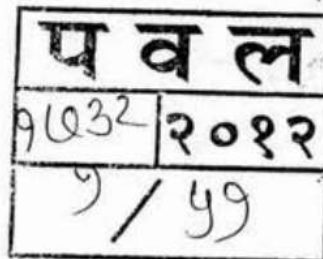 प व ल
१७३२ २०१२
१ / ५१